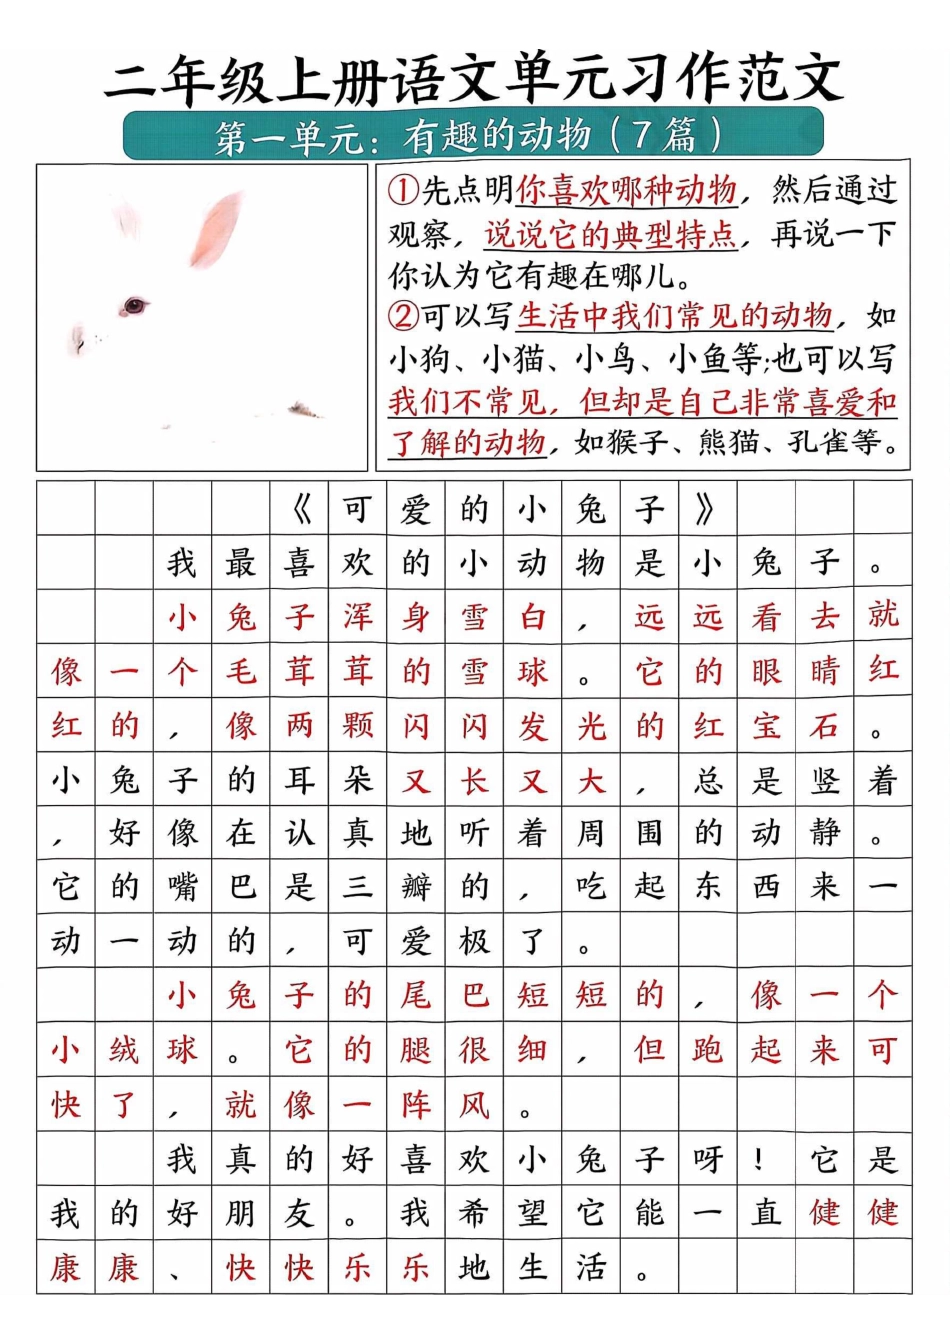 二年级上册语文单元习作范文
第一单元：有趣的动物（7篇）
①先点明你喜欢哪种动物，然后通过
观察，说说它的典型特点，再说一下
你认为它有趣在哪儿。
②可以写生活中我们常见的动物，如
小狗、小猫、小鸟、小鱼等;也可以写
我们不常见，但却是自己非常喜爱和
了解的动物，如猴子、熊猫、孔雀等。
《可爱的小兔子》
我最喜欢的小动物是小兔子。
小兔子浑身雪白，远远看去就
像一个毛茸茸的雪球。它的眼睛红
红的，像两颗闪闪发光的红宝石。
小兔子的耳朵又长又大，总是竖着
，好像在认真地听着周围的动静。
它的嘴巴是三瓣的，吃起东西来一
动一动的，可爱极了。
小兔子的尾巴短短的，像一个
小绒球。它的腿很细，但跑起来可
快了，就像一阵风。
我真的好喜欢小兔子呀！它是
我的好朋友。我希望它能一直健健
康康、快快乐乐地生活。